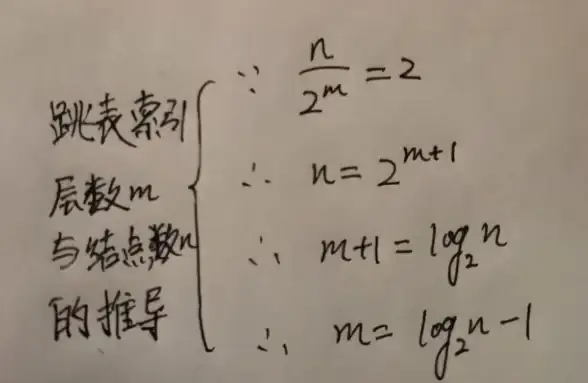 跳表索引
层数m
与结点数n
的推导
∵ n/2^m = 2
∴ n = 2^{m+1}
∴ m+1 = log_2 n
∴ m = log_2 n - 1